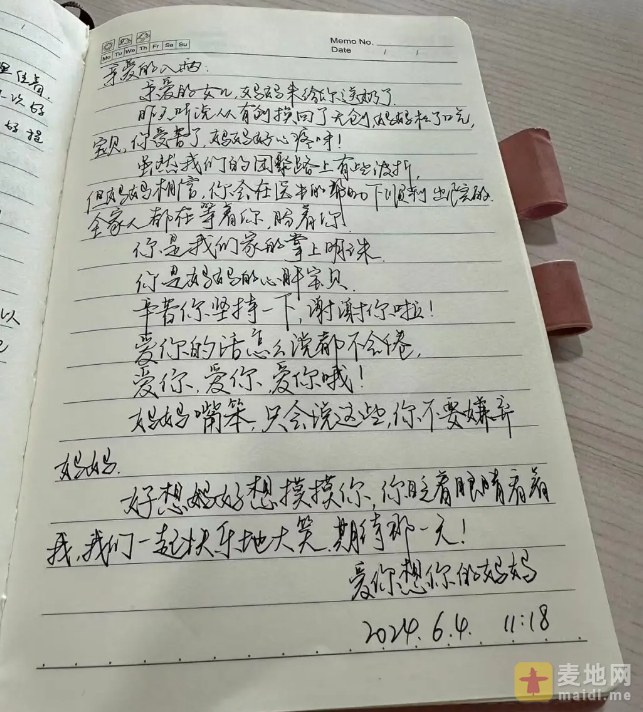 Memo No.
Mo Tu We Th Fr Sa Su
Date / /
亲爱的
亲爱的女儿,妈妈来给你送奶了.
昨天听说从有创换回了无创,妈妈
宝贝,你受苦了,妈妈好心疼呀!
虽然我们的团聚路上有些波折,
但妈妈相信,你会在医生的帮助下顺利出院的.
全家人都在等着你,盼着你!
你是我们家的掌上明珠.
你是妈妈的心肝宝贝.
辛苦你坚持一下,谢谢你啦!
爱你的话怎么说都不会倦,
爱你,爱你,爱你哦!
妈妈嘴笨,只会说这些,你不要嫌弃
妈妈.
好想好想摸摸你,你眨着眼睛看着
我,我们一起快乐地大笑,期待那一天!
爱你想你的妈妈
2024.6.4. 11:18
麦地网
maidi.me